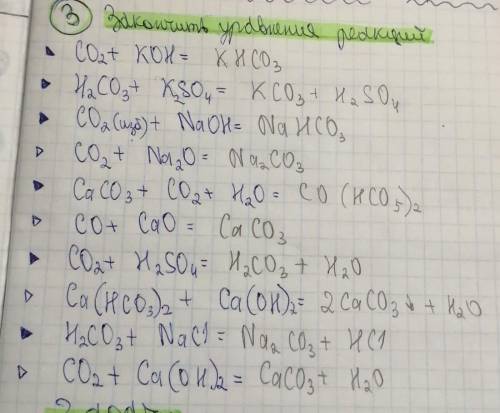 3 Закончить уравнения реакций
CO2 + KOH = KHCO3
H2CO3 + K2SO4 = KCO3 + H2SO4
CO2 (изб) + NaOH = NaHCO3
CO2 + Na2O = Na2CO3
CaCO3 + CO2 + H2O = CO(HCO5)2
CO + CaO = CaCO3
CO2 + H2SO4 = H2CO3 + H2O
Ca(HCO3)2 + Ca(OH)2 = 2CaCO3↓ + H2O
H2CO3 + NaCl = Na2CO3 + HCl
CO2 + Ca(OH)2 = CaCO3 + H2O